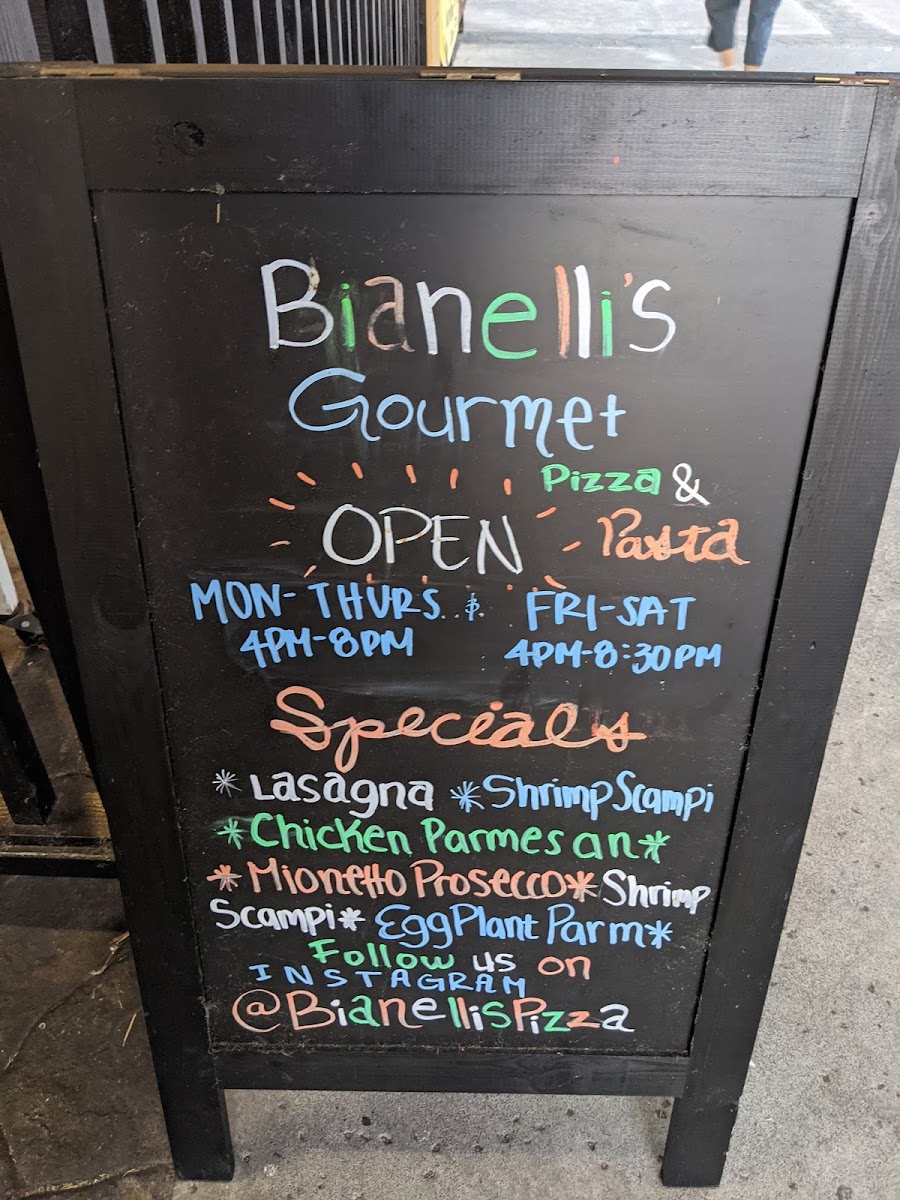 Bianelli's
Gourmet
Pizza &
Pasta
OPEN
MON-THURS. &. FRI-SAT
4PM-8PM 4PM-8:30PM
Specials
*Lasagna *Shrimp Scampi
*Chicken Parmesan*
*Mionetto Prosecco* Shrimp
Scampi* EggPlant Parm*
Follow us on
INSTAGRAM
@BianellisPizza